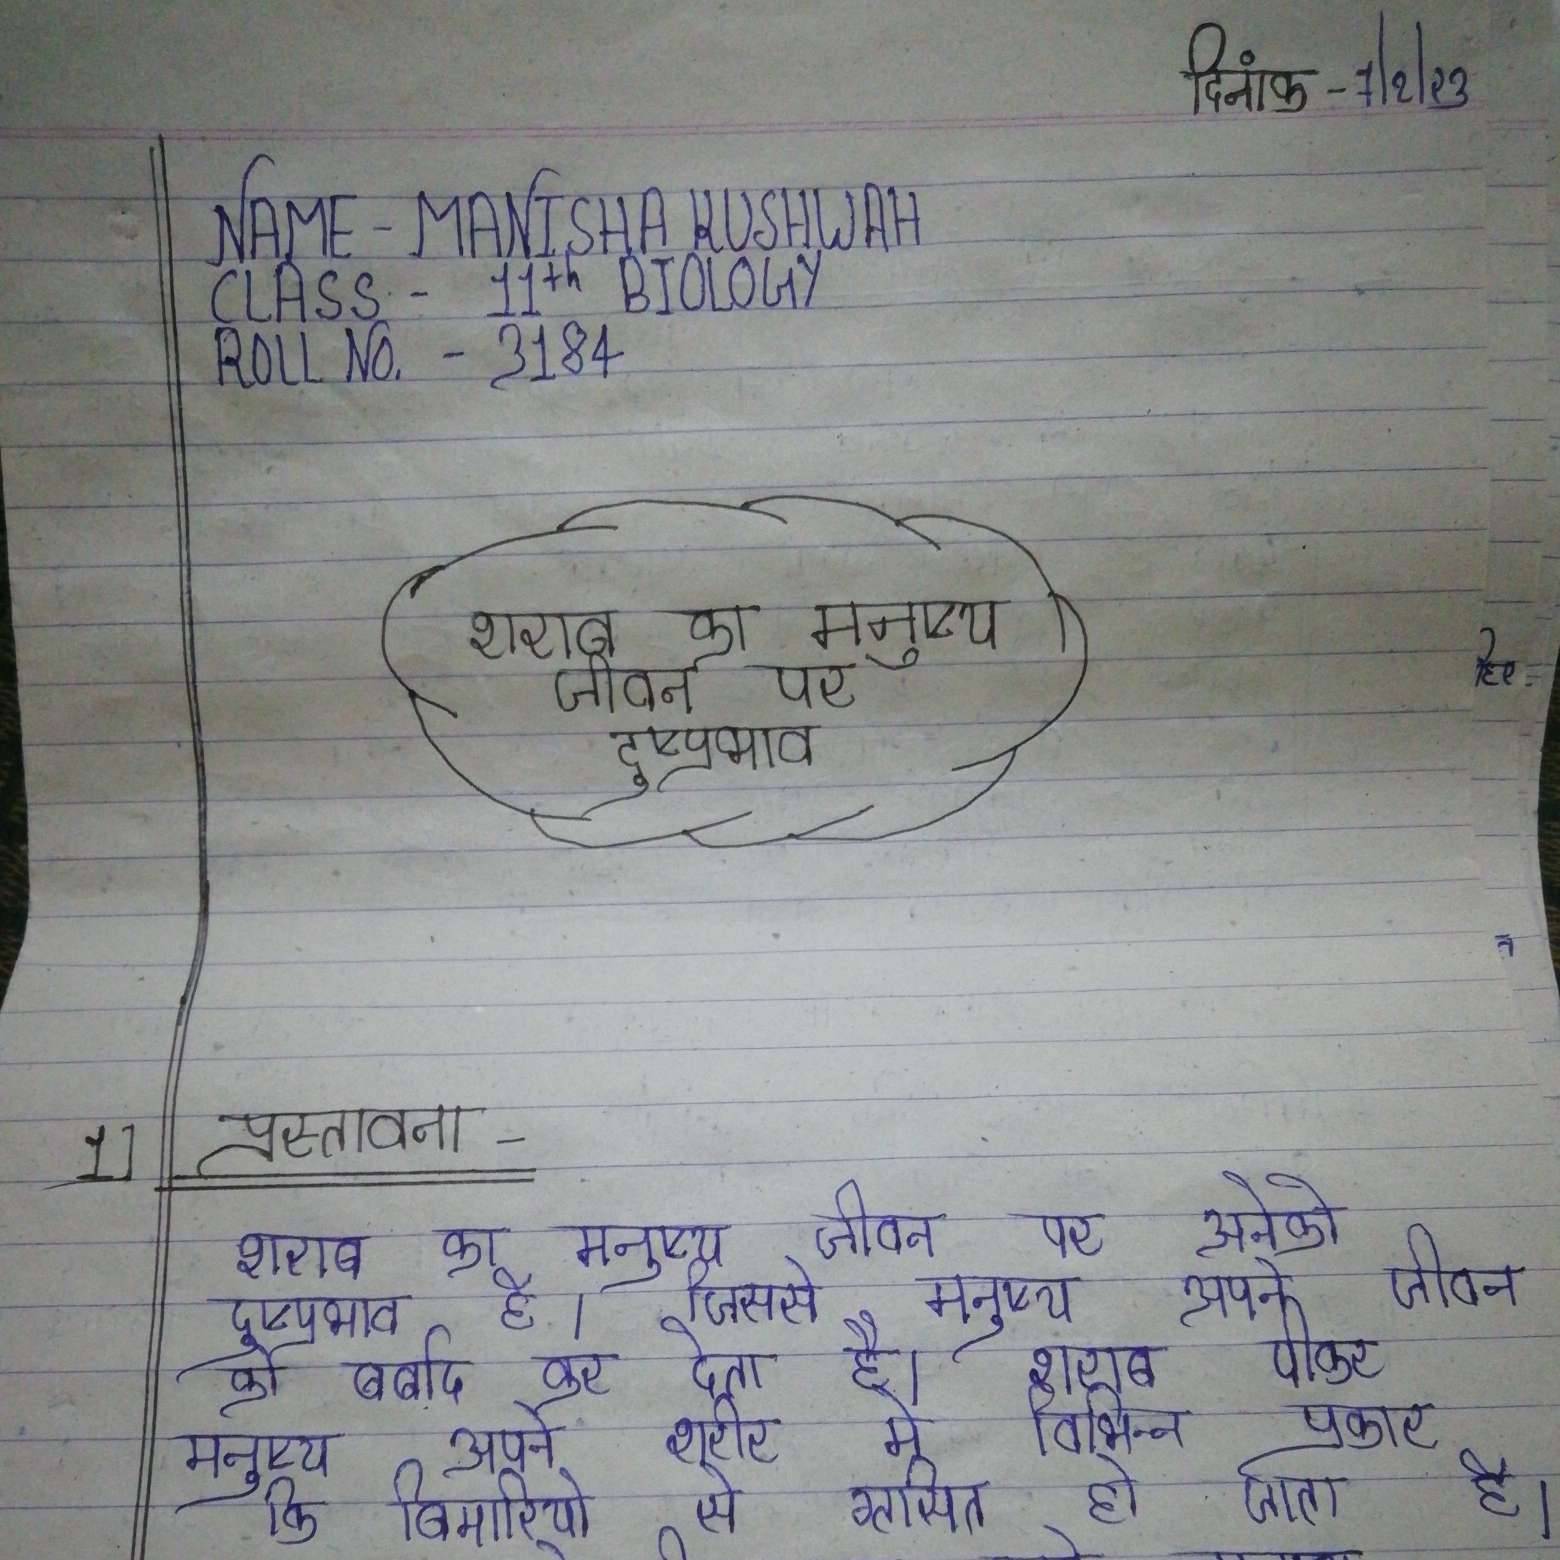 दिनांक - 7/2/23
NAME - MANISHA KUSHWAH
CLASS - 11th BIOLOGY
ROLL NO. - 3184
शराब का मनुष्य
जीवन पर
दुष्प्रभाव
1] प्रस्तावना -
शराब का मनुष्य जीवन पर अनेको
दुष्प्रभाव है। जिससे मनुष्य अपने जीवन
को बर्बाद कर देता है। शराब पीकर
मनुष्य अपने शरीर मे विभिन्न प्रकार
कि बिमारियो से हो जाता है।